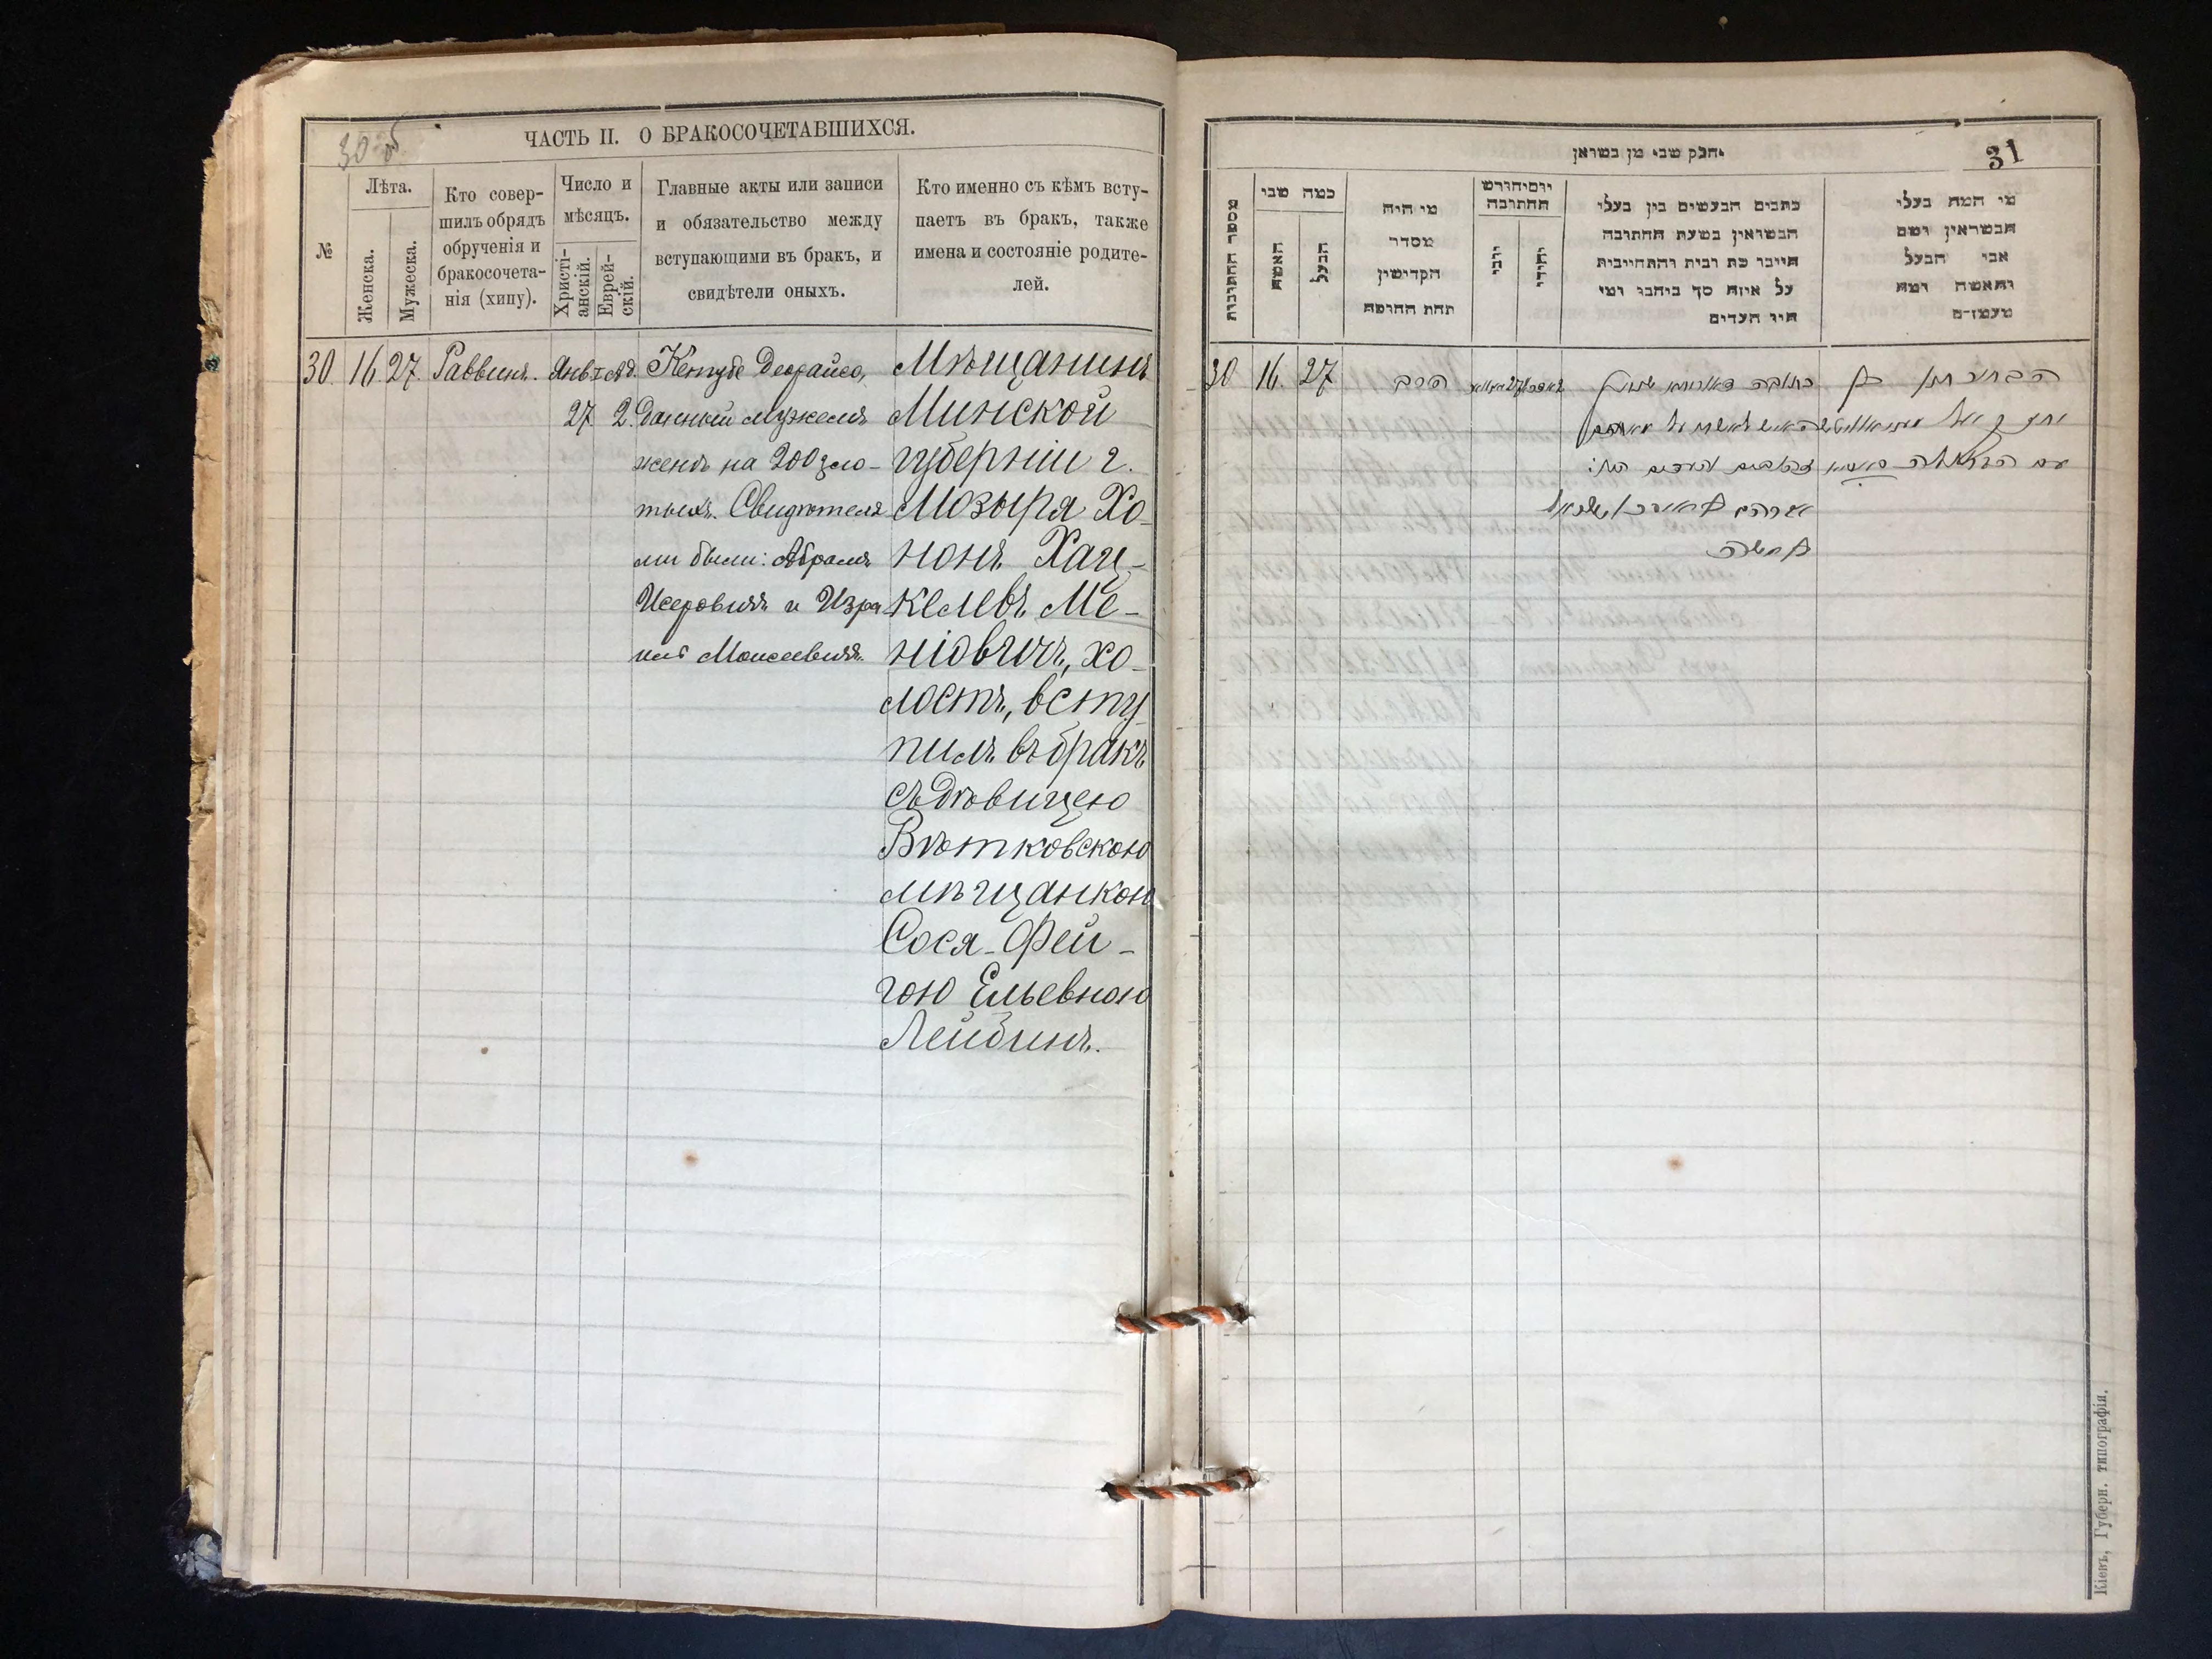 30 об
ЧАСТЬ II. О БРАКОСОЧЕТАВШИХСЯ.
№
Лѣта.
Женска.
Мужеска.
Кто совер-
шилъ обрядъ
обрученія и
бракосочета-
нія (хипу).
Число и
мѣсяцъ.
Христі-
анскій.
Еврей-
скій.
Главные акты или записи
и обязательство между
вступающими въ бракъ, и
свидѣтели оныхъ.
Кто именно съ кѣмъ всту-
паетъ въ бракъ, также
имена и состояніе родите-
лей.
30. 16. 27. Раввинъ. Янв.
27. 2.
Кетубе Деорайсо,
данный мужемъ
женѣ на 200 зло-
тыхъ. Свидѣтеля
ми были: Абрамъ
Исеровичъ и Изра
иль Моисеевичъ.
Мѣщанинъ
Минской
губерніи г.
Мозыря Хо-
нонъ Хац-
келевъ Ме-
ніовичъ, хо-
лостъ, всту
пилъ въ бракъ
съ дѣвицею
Вѣтковскою
мѣщанкою
Сося-Фей-
гою Ельевною
Лейбинъ.
31
חלק שני מן נשואן
מספר החתונות
כמה שני
האשה
הבעל
מי היה
מסדר
הקדישין
תחת החופה
יום יחודש
החתונה
נוצרי
יהודי
כתבים הנעשים בין בעלי
הנשואין בשעת החתונה
היינו כת ובית והתחייבות
על איזה סך ביחבו ומי
היו העדים
מי המה בעלי
הנשואין ושם
אבי הבעל
והאשה ומה
מעמדם
30 16. 27 הרב
כתובה דאורייתא
אברהם
Кіевъ, Губерн. типографія.